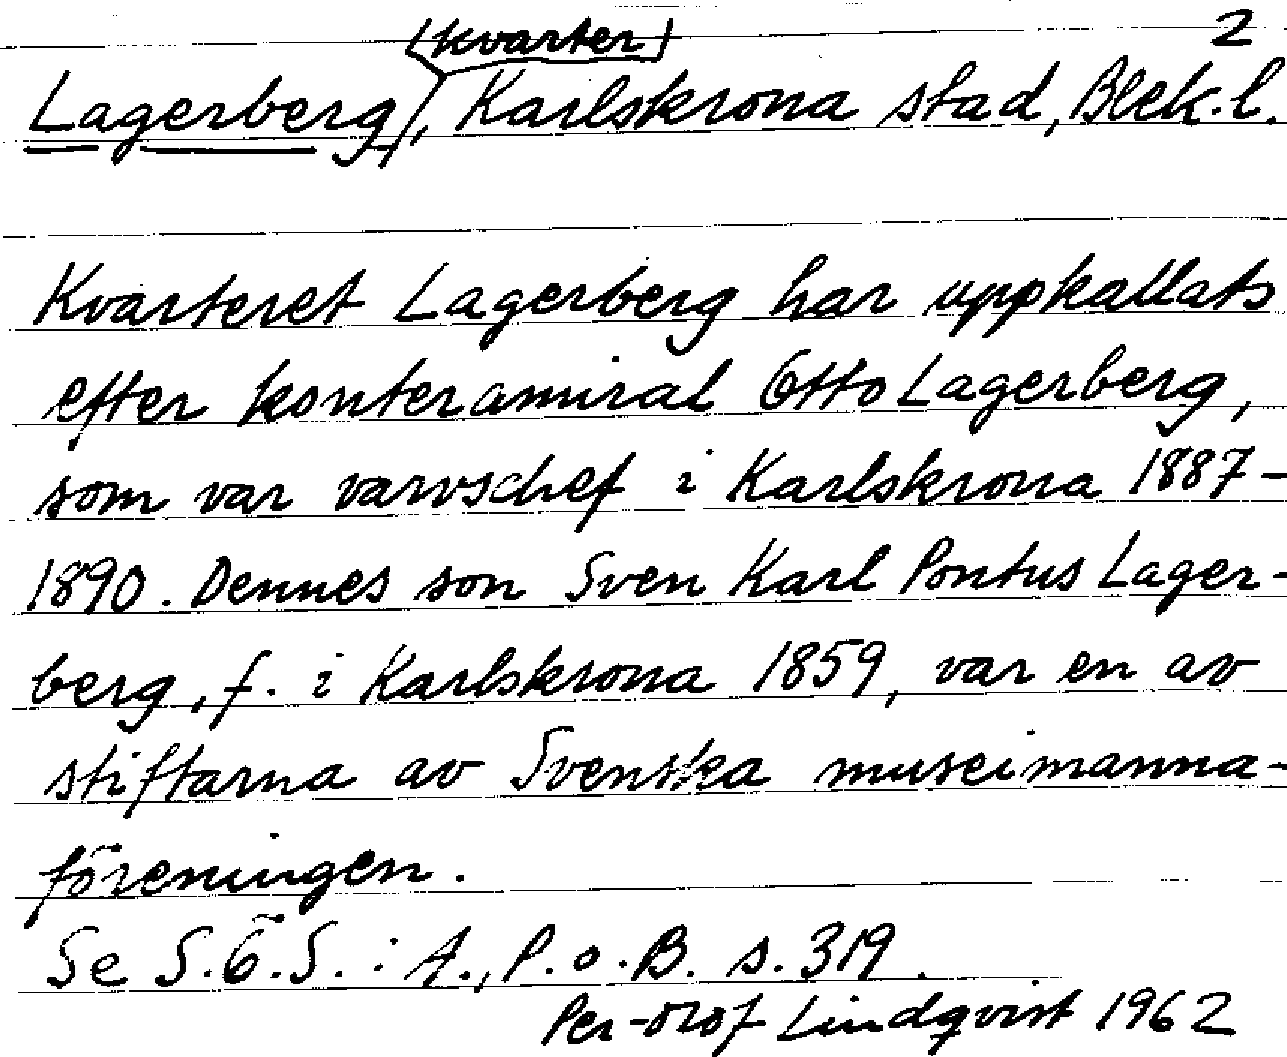 2
(kvarter)
Lagerberg, Karlskrona stad, Blek. l.
Kvarteret Lagerberg har uppkallats
efter konteramiral Otto Lagerberg,
som var varvschef i Karlskrona 1887-
1890. Dennes son Sven Karl Pontus Lager-
berg, f. i Karlskrona 1859, var en av
stiftarna av Svenska museimanna-
föreningen.
Se S.Ö.S. : A., P. o. B. s. 319.
Per-Olof Lindqvist 1962